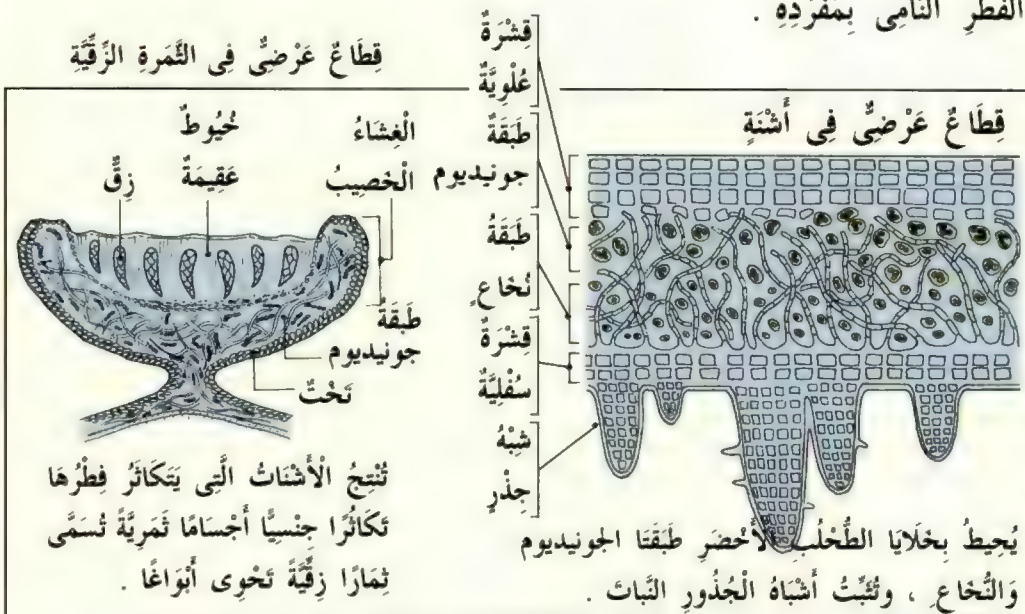 الْفُطْرِ النَّامِى بِمُفْرَدِهِ .
قِطَاعٌ عَرْضِىٌّ فِى أُشْنَةٍ
قِشْرَةٌ
عُلْوِيَّةٌ
طَبَقَةُ
جونيديوم
طَبَقَةُ
نُخَاعٍ
قِشْرَةٌ
سُفْلِيَّةٌ
شِبْهُ
جِذْرٍ
يُحِيطُ بِخَلَايَا الطُّحْلُبِ الْأَخْضَرِ طَبَقَتَا الجونيديوم
وَالنُّخَاعِ ، وتُثَبِّتُ أَشْبَاهُ الْجُذُورِ النَّباتَ .
قِطَاعٌ عَرْضِىٌّ فِى الثَّمَرةِ الزِّقِّيَّةِ
الْغِشَاءُ
الْخَصِيبُ
خُيُوطٌ
عَقِيمَةٌ
زِقٌّ
طَبَقَةُ
جونيديوم
تَخْتٌ
تُنْتِجُ الْأَشْنَاتُ الَّتِى يَتَكَاثَرُ فِطْرُهَا
تَكَاثُرًا جِنْسِيًّا أَجْسَامًا ثَمَرِيَّةً تُسَمَّى
ثِمَارًا زِقِّيَّةً تَحْوِى أَبْوَاغًا .